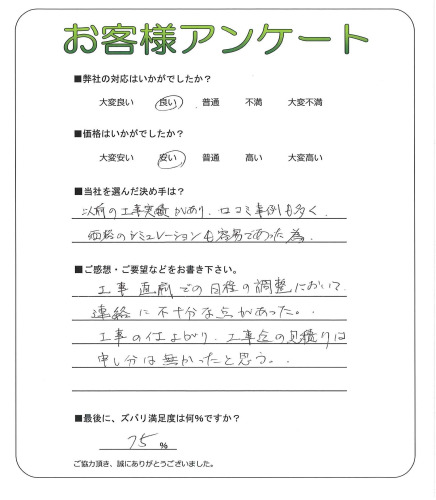 お客様アンケート
■弊社の対応はいかがでしたか？
大変良い 良い 普通 不満 大変不満
■価格はいかがでしたか？
大変安い 安い 普通 高い 大変高い
■当社を選んだ決め手は？
以前の工事実績があり、口コミ事例も多く、
価格のシミュレーションも容易であった為、
■ご感想・ご要望などをお書き下さい。
工事直前での日程の調整において、
連絡に不十分な点があった。
工事の仕上がり、工事金の見積りは
申し分は無かったと思う。
■最後に、ズバリ満足度は何％ですか？
75 ％
ご協力頂き、誠にありがとうございました。